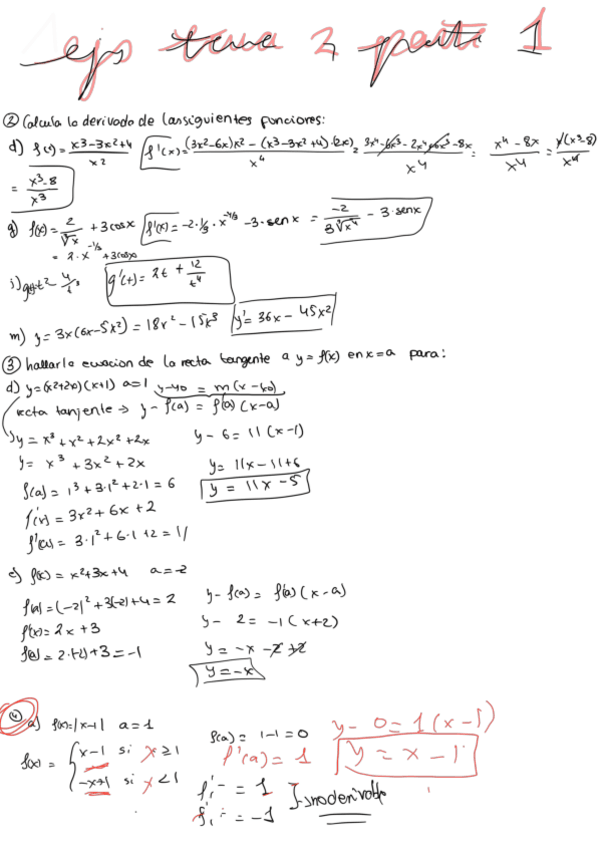 ejs tema 2 parte 1
② Calcula la derivada de las siguientes funciones:
d) f(x) = (x3-3x2+4)/x2 f'(x) = ((3x2-6x)x2 - (x3-3x2+4)·(2x))/x4 = (3x4-6x3-2x4+6x3-8x)/x4 = (x4-8x)/x4 = x(x3-8)/x4
= (x3-8)/x3
g) f(x) = 2/∛x + 3cosx f'(x) = -2·1/3·x^-4/3 - 3·senx = -2/(3∛x4) - 3·senx
= 2·x^-1/3 + 3cosx
g'(t) = 2t + 12/t4
m) y = 3x(6x-5x2) = 18x2 - 15x3 y' = 36x - 45x2
③ hallar la ecuacion de la recta tangente a y = f(x) en x=a para:
d) y=(x2+2x)(x+1) a=1 y-y0 = m(x-x0)
recta tanjente → y - f(a) = f'(a)(x-a)
y = x3 + x2 + 2x2 + 2x y - 6 = 11(x-1)
y = x3 + 3x2 + 2x y = 11x - 11+6
f(a) = 1^3 + 3·1^2 + 2·1 = 6 y = 11x - 5
f'(x) = 3x2 + 6x + 2
f'(a) = 3·1^2 + 6·1 + 2 = 11
e) f(x) = x2+3x+4 a=-2
f(a) = (-2)^2 + 3(-2) + 4 = 2 y - f(a) = f'(a)(x-a)
f'(x) = 2x + 3 y - 2 = -1(x+2)
f'(a) = 2·(-2) + 3 = -1 y = -x -2 +2
y = -x
④ a) f(x) = |x-1| a=1 f(a) = 1-1 = 0 y - 0 = 1(x-1)
f(x) = { x-1 si x ≥ 1 f'(a) = 1 y = x - 1
-x+1 si x < 1 f'- = 1 no derivable
f'- = -1